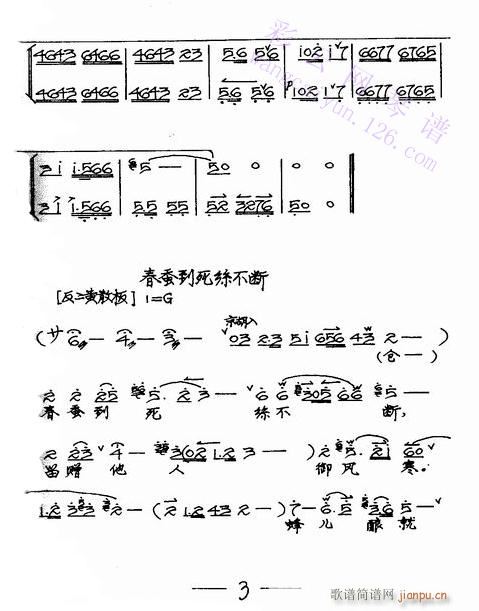 4643 6466 | 4643 23 | 5·6 56 | i02 i7 | 6677 6765
4643 6466 | 4643 23 | 5·6 56 | i02 i7 | 6677 6765
3i i·566 | 5— | 50 0 | 0 0
3i i·566 | 55 55 | 52 3276 | 50 0
春蚕到死练不断
[反二黄散板] 1=G
京胡入
(サ6— 4— 3— 03 23 5i 656 43 2—)
(仓—)
2 2 25 5· 2 3— 6 6 305 66 5—
春 蚕 到 死 练 不 断,
2 23 4— 302 1·2 3— ) 2 5· 2i 60
留 赠 他 人 御 风 寒。
1·2 323 2— (2 1·2 43 2—) 7— 6·5 36 5—
蜂 儿 酿 就
— 3 —
歌谱简谱网
jianpu.cn